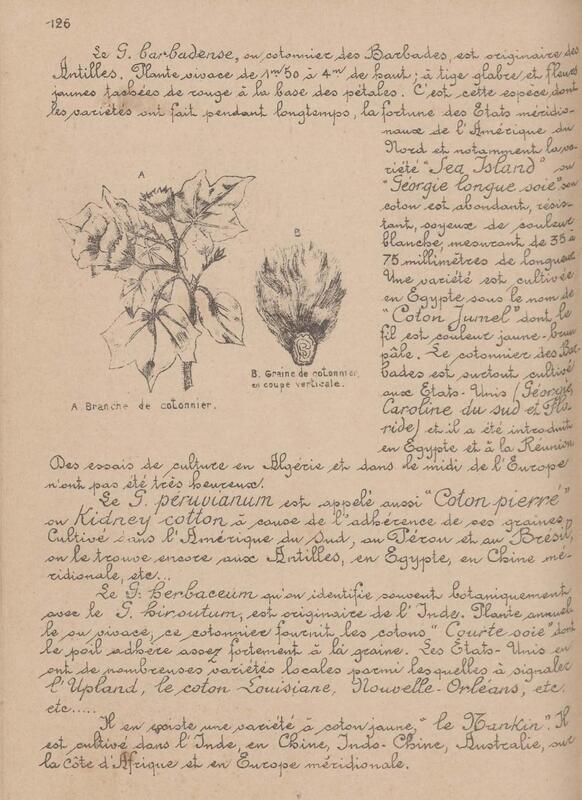 126
Le G. barbadense, ou cotonnier des Barbades, est originaire des
Antilles. Plante vivace de 1m50 à 4m de haut; à tige glabre et fleurs
jaunes tachées de rouge à la base des pétales. C'est cette espèce dont
les variétés ont fait pendant longtemps, la fortune des Etats méridio-
naux de l'Amérique du
Nord et notamment la va-
riété "Sea Island" ou
"Géorgie longue soie" son
coton est abondant, résis-
tant, soyeux de couleur
blanche, mesurant de 35 à
75 millimètres de longueur
Une variété est cultivée
en Egypte sous le nom de
"Coton Jumel" dont le
fil est couleur jaune-brun
pâle. Le cotonnier des Bar-
bades est surtout cultivé
aux Etats-Unis (Géorgie,
Caroline du sud et Flo-
ride) et il a été introduit
en Egypte et à la Réunion
A
B
B. Graine de cotonnier
en coupe verticale.
A. Branche de cotonnier.
Des essais de culture en Algérie et dans le midi de l'Europe
n'ont pas été très heureux.
Le G. péruvianum est appelé aussi "Coton pierré"
ou Kidney cotton à cause de l'adhérence de ses graines.
Cultivé dans l'Amérique du Sud, au Pérou et au Brésil,
on le trouve encore aux Antilles, en Egypte, en Chine mé-
ridionale, etc...
Le G. herbaceum qu'on identifie souvent botaniquement
avec le G. hirsutum, est originaire de l'Inde. Plante annuel-
le ou vivace, ce cotonnier fournit les cotons "Courte soie" dont
le poil adhère assez fortement à la graine. Les Etats-Unis en
ont de nombreuses variétés locales parmi lesquelles à signaler
l'Upland, le coton Louisiane, Nouvelle-Orléans, etc
etc.....
Il en existe une variété à coton jaune, "le Nankin". Il
est cultivé dans l'Inde, en Chine, Indo-Chine, Australie, sur
la côte d'Afrique et en Europe méridionale.